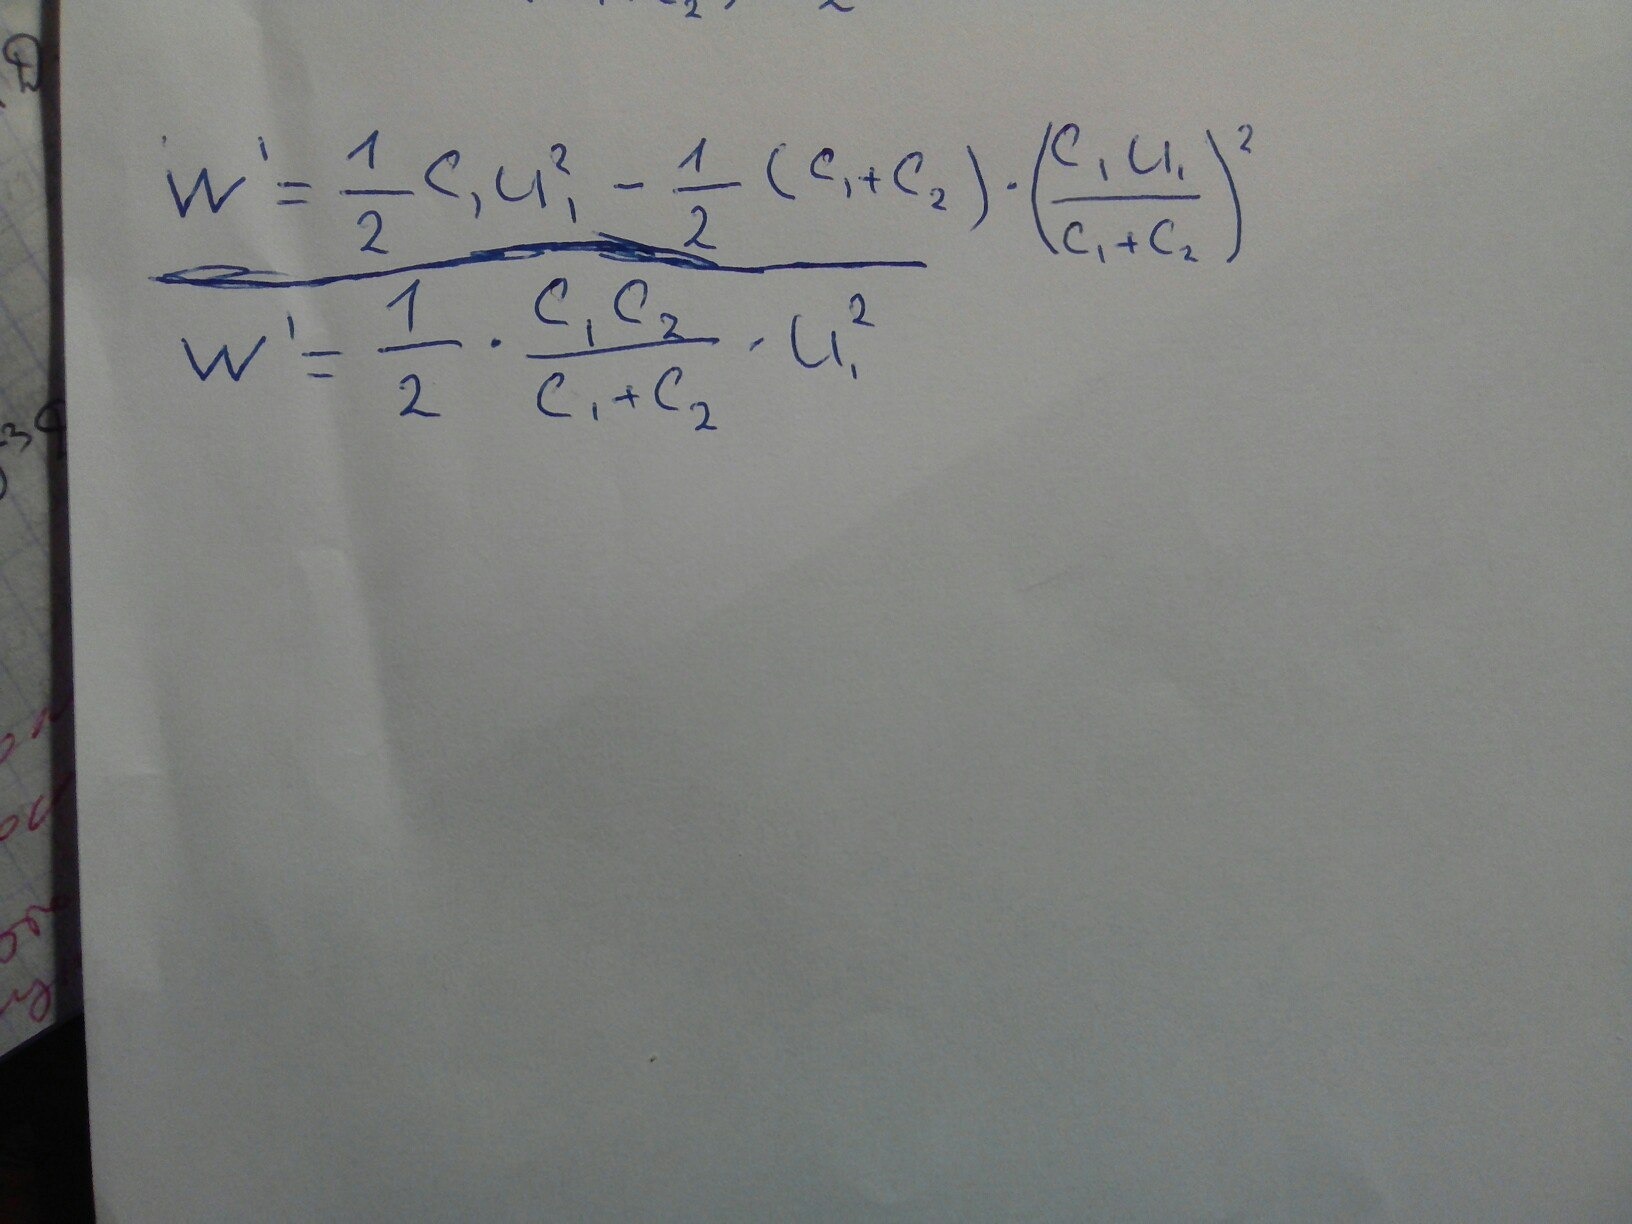 W' = 1/2 C₁U₁² - 1/2 (C₁+C₂)·(C₁U₁/(C₁+C₂))²
W' = 1/2 · C₁C₂/(C₁+C₂) · U₁²